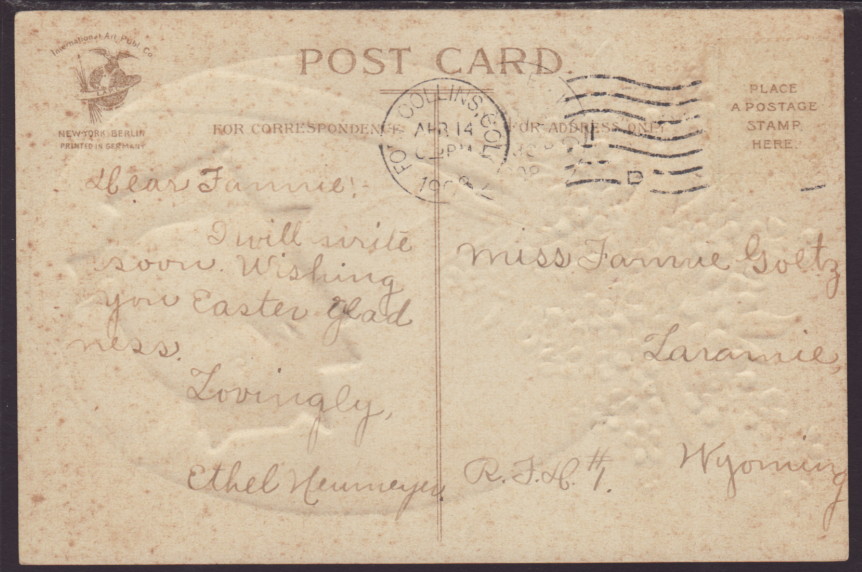 International Art Publ. Co.
NEW YORK-BERLIN
PRINTED IN GERMANY
POST CARD
FOR CORRESPONDENCE
FOR ADDRESS ONLY
PLACE
A POSTAGE
STAMP
HERE.
COLLINS, COLO
APR 14
PM
D
Dear Fannie!-
I will write
soon. Wishing
you Easter glad
ness.
Lovingly,
Ethel Neumeyer.
Miss Fannie Goltz
Laramie,
Wyoming
R.F.D. #1.